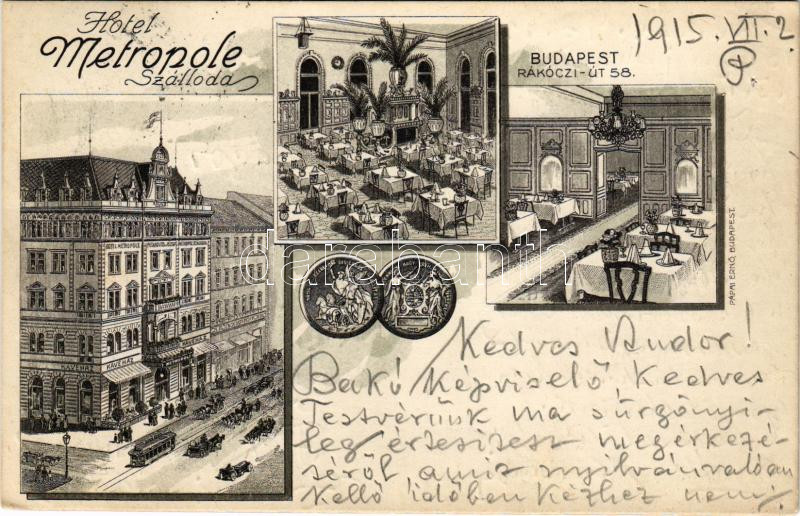 Hotel
Metropole
Szálloda
BUDAPEST
RÁKÓCZI-ÚT 58.
1915. VII. 2
HOTEL METROPOLE
KÁVÉHÁZ
darabanth
PÁPAI ERNŐ, BUDAPEST.
Kedves Andor!
Bakó Képviselő Kedves
Testvérünk ma sürgönyi-
leg értesitest megérkezé-
séről amit nyilvánvalóan
Kellő időben Kézhez nem